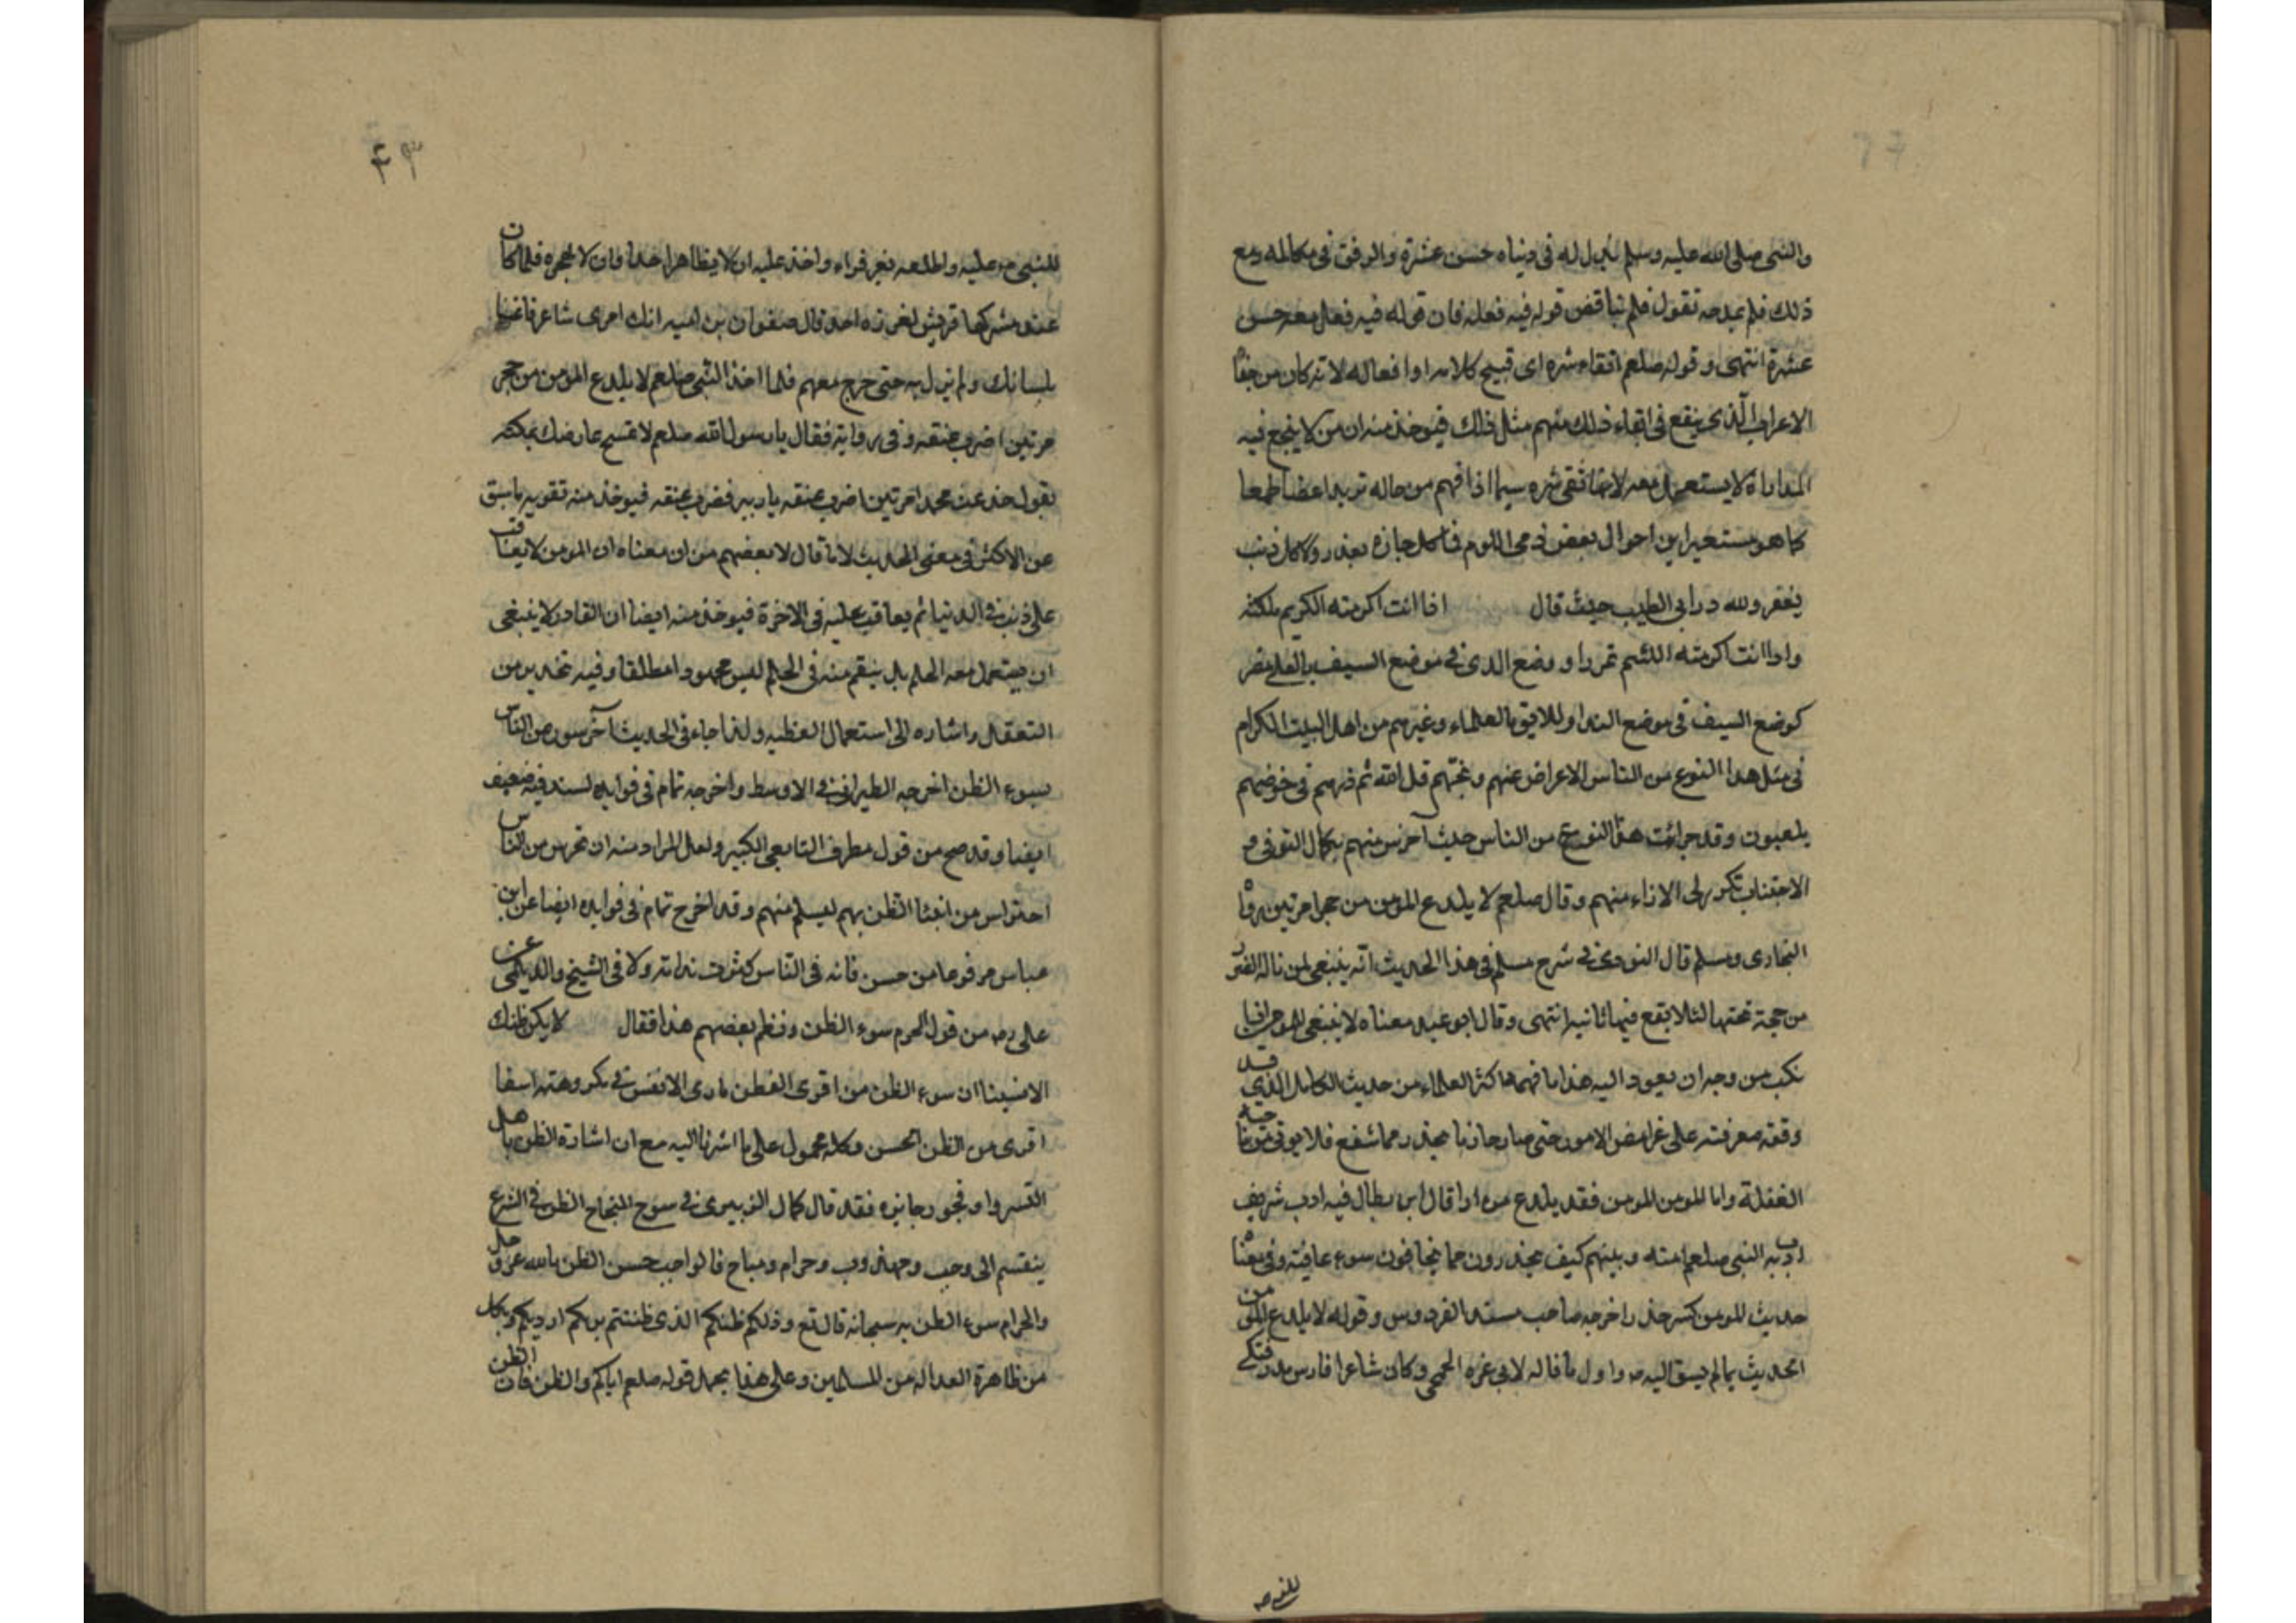 والنبى صلى الله عليه وسلم بذل له فى دنياه حسن عشرة والرفق فى مكالمه ومع
ذلك فلم يمدحه تقول فلم يناقض قوله فيه فعله فان قوله فيه فعل معه حسن
عشرة انتهى وقوله صلعم اتقاء شره اى قبيح كلامه او افعاله لانه كان من جفا
الاعراب الذى ينفع فى اتقاء ذلك منهم مثل ذلك فيوخذ منه ان من لا ينجع فيه
المداراة لا يستعمل معه لاتقا شره سيما اذا فهم من حاله
كما هو مستخير اين احوال بعض فما كل جازه بعذر ولا كل ذنب
يغفر ولله در ابى الطيب حيث قال اذا انت اكرمته الكريم ملكته
واذا انت اكرمته اللئيم تمردا ووضع الندى فى موضع السيف بالعلى مضر
كوضع السيف فى موضع الندا واللايق بالعلماء وغيرهم من اهل البيت الكرام
فى مثل هذا النوع من الناس الاعراض عنهم قل الله ثم ذرهم فى خوضهم
يلعبون وقد هذا النوع من الناس حيث منهم بكمال التوقى و
الاجتناب منهم وقال صلعم لا يلدغ المومن من جحر مرتين رواه
البخارى ومسلم قال النووى فى شرح مسلم فى هذا الحديث انه ينبغى لمن ناله الضرر
من جهة لئلا يقع فيها ثانيه انتهى وقال ابو عبيد معناه لا ينبغى للمومن اذا
نكب من وجه ان يعود اليه هذا ما فهمه اكثر العلماء من حديث الكامل الذى قد
وقفته معرفته على غوامض الامور حتى صار حازما يحذر مما
الغفلة واما المومن المومن فقد يلدغ مرارا قال ابن بطال فيه ادب شريف
ادب به النبى صلعم امته وبينهم كيف يحذرون مما يخافون سوء عاقبته وفى معناه
حديث المومن كيس حذر اخرجه صاحب مسند الفردوس وقوله لا يلدغ المومن
الحديث مما لم يسبق اليه واول ما قاله لابى عزه الجمحى وكان شاعرا
للنبى
للنبى عليه واطلعه بغير فداء واخذ عليه ان لا يظاهر احدا فلما كان
مشركها قريش لغزوة احد قال صفوان بن اميه انك امرى شاعر فاعنا
بلسانك ولم يزل به حتى خرج معهم فلما اخذ النبى صلعم لا يلدغ المومن من جحر
مرتين اضرب عنقه وفى رواية فقال يا رسول الله صلعم لا تمسح عارضك بمكه
تقول خدعت محمدا مرتين اضرب عنقه يا زبير فضرب عنقه فيوخذ منه تقويه ما سبق
عن الاكثر فى معنى الحديث لا ما قال لا بعضهم من ان معناه ان المومن لا يعاقب
على ذنب فى الدنيا ثم يعاقب عليه فى الاخرة فيوخذ منه ايضا ان القادر لا ينبغى
ان يستعمل معه الحلم بل ينتقم منه فى الحلم ليس محمودا مطلقا وفيه تحذير من
التغفل واشاره الى استعمال الفطنه ولذا جاء فى الحديث احترسو من الناس
بسوء الظن اخرجه الطبرانى فى الاوسط واخرجه تمام فى فوايده لسند فيه ضعيف
ايضا وقد صح من قول مطرف التابعى الكبير ولعل المراد منه ان تحرس من الناس
احتراس من الظن بهم ليسلم منهم وقد اخرج تمام فى فوايده ايضا عن ابن
عباس مرفوعا من حسن ظنه فى الناس كثرت ندامته ولا فى الشيخ والديلمى عن
على من قول الحزم سوء الظن ونظم بعضهم هذا فقال لا يكن ظنك
الا سيئا ان سوء الظن من اقوى الفطن ما رمى الانفس فى مكروهته اسفا
اقوى من الظن الحسن وكله محمول على ما اشرنا اليه مع ان اشارة الظن باهل
التستر او فجور جايزه فقد قال كمال الدميرى فى شرح المنهاج الظن فى الشرع
ينقسم الى وجب ومندوب وحرام ومباح فالواجب حسن الظن بالله عز وجل
والحرام سوء الظن به سبحانه قال تع وذلكم ظنكم الذى ظننتم بربكم ارديكم وبكل
من ظاهرة العداله من المسلمين وعلى هذا يحمل قوله صلعم اياكم والظن فان الظن